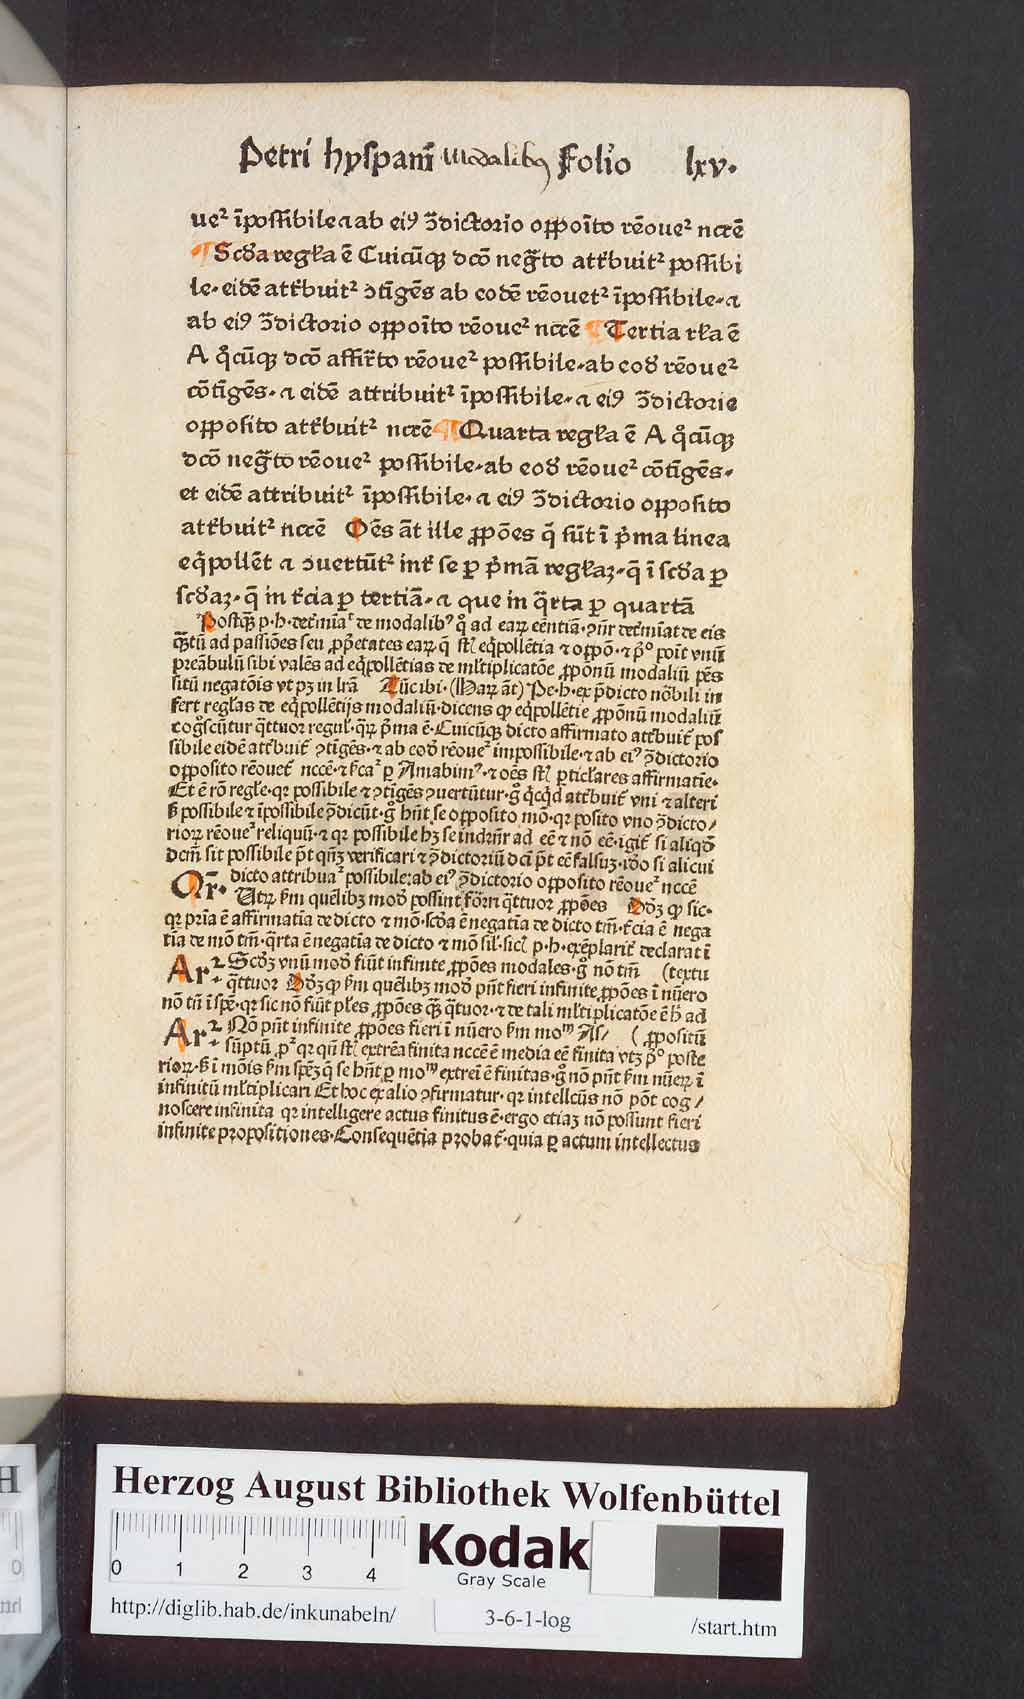 Petri hyspani̅ Modalibꝰ Folio lxv.
ueꝛ i̅possibile ⁊ ab eiꝰ ꝯ̅dictorio oppoi̅to re̅oueꝛ nc̅c̅e̅
¶ Scd̅a regl̅a e̅ Cuicu̅qꝫ dco̅ neg̅to attr̅buitꝛ possibi
le. eide̅ attr̅buitꝛ ↄti̅ge̅s ab eode̅ re̅ouetꝛ i̅possibile. ⁊
ab eiꝰ ꝯ̅dictorio oppoi̅to re̅oueꝛ nc̅c̅e̅ ¶ Tertia rl̅a e̅
A q̊cu̅qꝫ dco̅ affir̅to re̅oueꝛ possibile. ab eod̅ re̅oueꝛ
co̅ti̅ge̅s. ⁊ eide̅ attribuitꝛ i̅possibile. ⁊ eiꝰ ꝯ̅dictorie
opposito attr̅buitꝛ nc̅c̅e̅ ¶ Quarta regl̅a e̅ A q̊cu̅qꝫ
dco̅ neg̅to re̅oueꝛ possibile. ab eod̅ re̅oueꝛ co̅ti̅ge̅s.
et eide̅ attribuitꝛ i̅possibile. ⁊ eiꝰ ꝯ̅dictorio opposito
attr̅buitꝛ nc̅c̅e̅ O̅e̅s a̅t ille ꝓpo̅es q̅ su̅t i̅ p̅ma linea
eq̇polle̅t ⁊ ↄuertu̅tꝛ int̅ se ꝑ p̅ma̅ regl̅aꝫ. q̅ i̅ scd̅a ꝑ
scd̅aꝫ. q̅ in t̅cia ꝑ tertia̅. ⁊ que in q̅rta ꝑ quarta̅
Postqꝫ̅ p. h. det̅mi̅aꝛ de modalibꝰ q̊ ad eaꝝ ee̅ntia̅. ↄn̅r det̅mi̅at de eis
qꝫ̅tu̅ ad passio̅es seu ꝓp̅etates eaꝝ q̅ st̅ eq̇polle̅tia ⁊ oppo̅. ⁊ p̅º poi̅t vnu̅
prea̅bulu̅ sibi vale̅s ad eq̇polle̅tias de ml̅tiplicato̅e ꝓpo̅nu̅ modaliu̅ pe̅s
situ̅ negato̅is vt pꝫ in lr̅a Tu̅c ibi. (Haꝝ a̅t) Pe. h. ex p̅dicto no̅bili in
fert regl̅as de eq̇polle̅tijs modaliu̅. dicens ꝙ eq̇polle̅tie ꝓpo̅nu̅ modaliu̅
cog̅scu̅tur q̅ttuor regul̅. q̅ꝝ p̅ma e̅. Cuicu̅qꝫ dicto affirmato attr̅buit̅ pos
sibile eide̅ attr̅buit̅ ↄti̅ge̅s. ⁊ ab eod̅ re̅oueꝛ impossibile. ⁊ ab eiꝰ ↄ̅dictorio
opposito re̅ouet̅ nc̅c̅e̅. ⁊ t̅caꝛ ꝑ Amabimꝰ. ⁊ oe̅s st̅ ꝑticl̅ares affirmati̅e.
Et e̅ ro̅ regl̅e. qꝛ possibile ⁊ ↄti̅ge̅s ↄuertu̅tur. g̊ q̇cq̇d attr̅buit̅ vni ⁊ alteri
ß possibile ⁊ i̅possibile ↄ̅dicu̅t. g̊ hn̅t se opposito mo̅. qꝛ posito vno ↄ̅dicto/
rioꝝ re̅oueꝛ reliquu̅. ⁊ qꝛ possibile hꝫ se indrn̅r ad ee̅ ⁊ no̅ ee̅. igit̅ si aliqd̅
dcm̅ sit possibile p̅t qn̅qꝫ verificari ⁊ ↄ̅dictoriu̅ dci̅ p̅t ee̅ falsuꝫ. id̅o si alicui
dicto attribuaꝛ possibile: ab eiꝰ ↄ̅dictorio opposito re̅oueꝛ nc̅c̅e̅
Qr̅. Utꝝ ẜm quel̅ibꝫ mod̅ possint for̅n q̅ttuor ꝓpo̅es Dd̅ꝫ ꝙ sic.
qꝛ pri̅a e̅ affirmati̅a de dicto ⁊ mo̅. scd̅a e̅ negati̅a de dicto tm̅. t̅cia e̅ nega
ti̅a de mo̅ tm̅. q̅rta e̅ negati̅a de dicto ⁊ mo̅ sil̅. sicł p. h. exe̅plarit̅ declarat i̅
Arꝛ. Scd̅ꝫ vnu̅ mod̅ fiu̅t infinite ꝓpo̅es modales. g̊ no̅ tm̅ (textu
q̅ttuor Dd̅ꝫ ꝙ ẜm quel̅ibꝫ mod̅ pn̅t fieri infinite ꝓpo̅es i̅ nu̅ero
no̅ tn̅ i̅ spe̅. qꝛ sic no̅ fiu̅t pl̅es ꝓpo̅es qꝫ̅ q̅tuor. ⁊ de tali ml̅tiplicato̅e e̅ h̅ ad
Arꝛ. No̅ pn̅t infinite ꝓpo̅es fieri i̅ nu̅ero ẜm moᵐ As/ (ꝓpositu̅
su̅ptu̅ pꝛ qꝛ qu̅ st̅ extre̅a finita nc̅c̅e̅ e̅ media ee̅ finita vtꝫ p̅º poste
rioꝝ. ẞ i̅ mo̅is ẜm spe̅ꝫ q̅ se hn̅t ꝑ moᵐ extrei̅ e̅ finitas. g̊ no̅ pn̅t ẜm nu̅eꝝ i̅
infinitu̅ ml̅tiplicari Et hoc ex alio ↄfirmatur. qꝛ intellcu̅s no̅ po̅t cog/
noscere infinita qꝛ intelligere actus finitus e̅. ergo etiaꝫ no̅ possunt fieri
infinite propositiones. Conseque̅tia probat̅. quia ꝑ actum intellectus
Herzog August Bibliothek Wolfenbüttel
0 1 2 3 4
Kodak
Gray Scale
http://diglib.hab.de/inkunabeln/ 3-6-1-log /start.htm